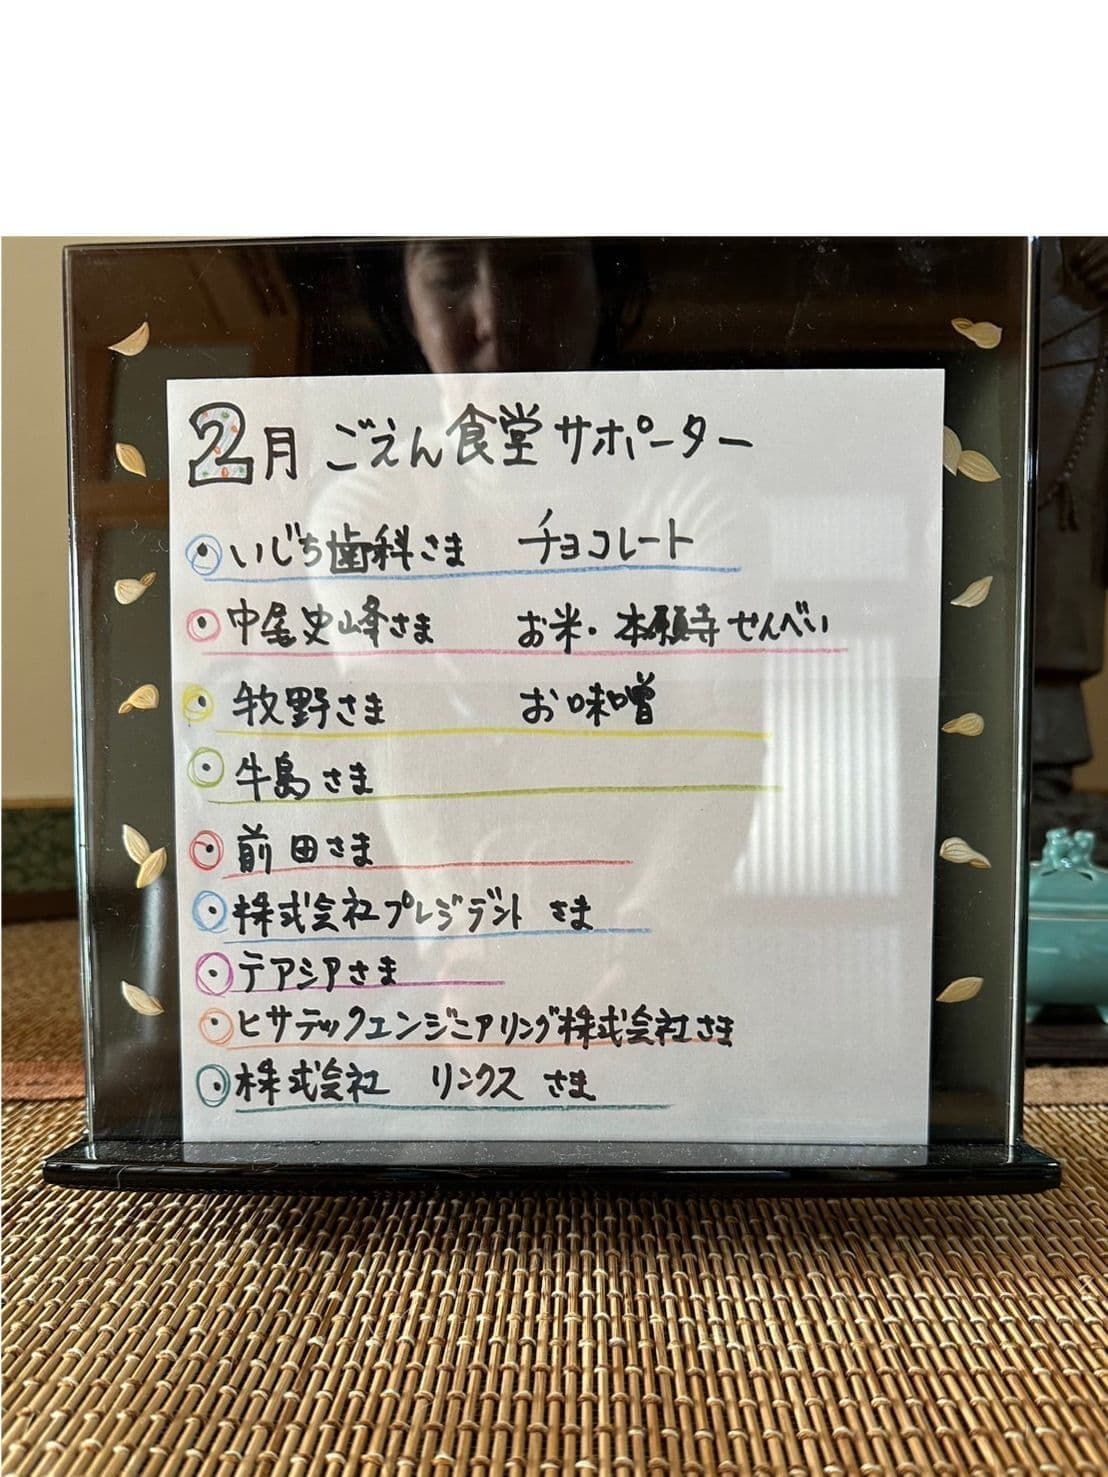 2月 ごえん食堂サポーター
いじち歯科さま チョコレート
中尾史峰さま お米・本願寺せんべい
牧野さま お味噌
牛島さま
前田さま
株式会社プレジデント さま
テアシアさま
ヒサテックエンジニアリング株式会社さま
株式会社 リンクス さま